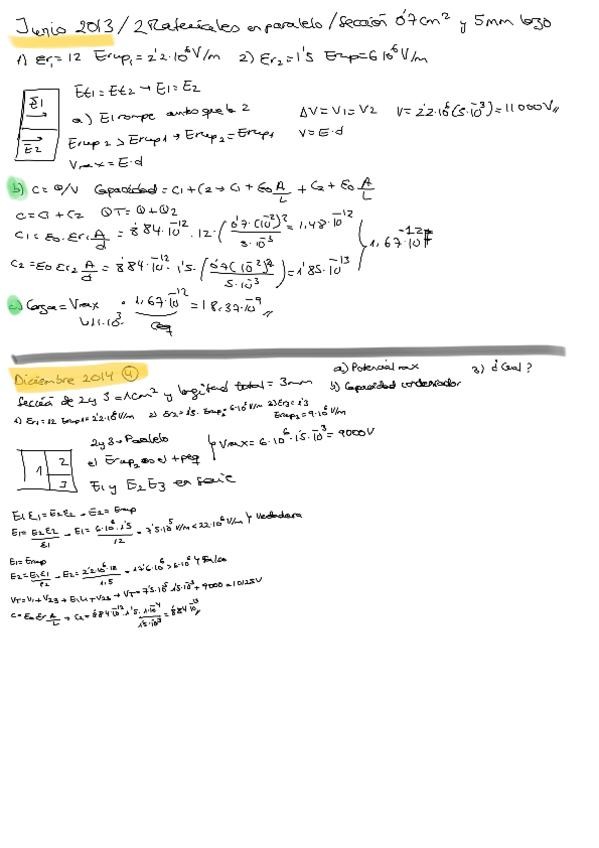 Junio 2013 / 2 Materiales en paralelo / Sección 0'7cm² y 5mm largo
1) Er₁ = 12 Erup₁ = 2'2·10⁶ V/m 2) Er₂ = 1'5 Erup = 6 10⁶ V/m
E1
E2
Et1 = Et2 → E1 = E2
a) E1 rompe antes que la 2
ΔV = V1 = V2 V = 2'2·10⁶(5·10⁻³) = 11000V
Erup2 > Erup1 → Erup2 = Erup1
V = E·d
Vmax = E·d
b) C = Q/V Capacidad = C1 + C2 → C1 + E0 A/L + C2 + E0 A/L
C = C1 + C2 QT = Q1 + Q2
C1 = E0·Er1 A/d = 8'84·10⁻¹²·12·(0'7·(10⁻²)²/5·10⁻³) = 1,48·10⁻¹²
1,67·10⁻¹² F
C2 = E0 Er2 A/d = 8'84·10⁻¹²·1'5·(0'7(10⁻²)²/5·10⁻³) = 1'85·10⁻¹³
c) Carga = Vmax · 1,67·10⁻¹² = 18,37·10⁻⁹
11·10³ Ceq
Diciembre 2014 4
a) Potencial max 3) ¿Cual?
Sección de 2 y 3 = 1cm² y longitud total = 3mm b) Capacidad condensador
1) Er1 = 12 Erup1 = 2'2·10⁶ V/m 2) Er2 = 1'5 Erup2 6·10⁶ V/m 3) Er3 = 1'3
Erup3 = 9·10⁶ V/m
1 2
3
2 y 3 → Paralelo
el Erup2 es el + peq
Vmax = 6·10⁶·1'5·10⁻³ = 9000V
E1 y E2E3 en serie
E1 E1 = E2 E2 → E2 = Erup
E1 = E2E2/E1 → E1 = 6·10⁶·1'5/12 = 7'5·10⁵ V/m < 22·10⁶ V/m Verdadera
E1 = Erup
E2 = E1E1/E2 → E2 = 2'2·10⁶·12/1,5 = 17'6·10⁶ > 6·10⁶ Falsa
VT = V1 + V23 + E1L1 + V23 → VT = 7'5·10⁵ 1'5·10⁻³ + 9000 = 10125V
C = E0 Er A/L → C2 = 8'84 10⁻¹²·1'5·1·10⁻⁴/1'5·10⁻³ = 8'84 10⁻¹³